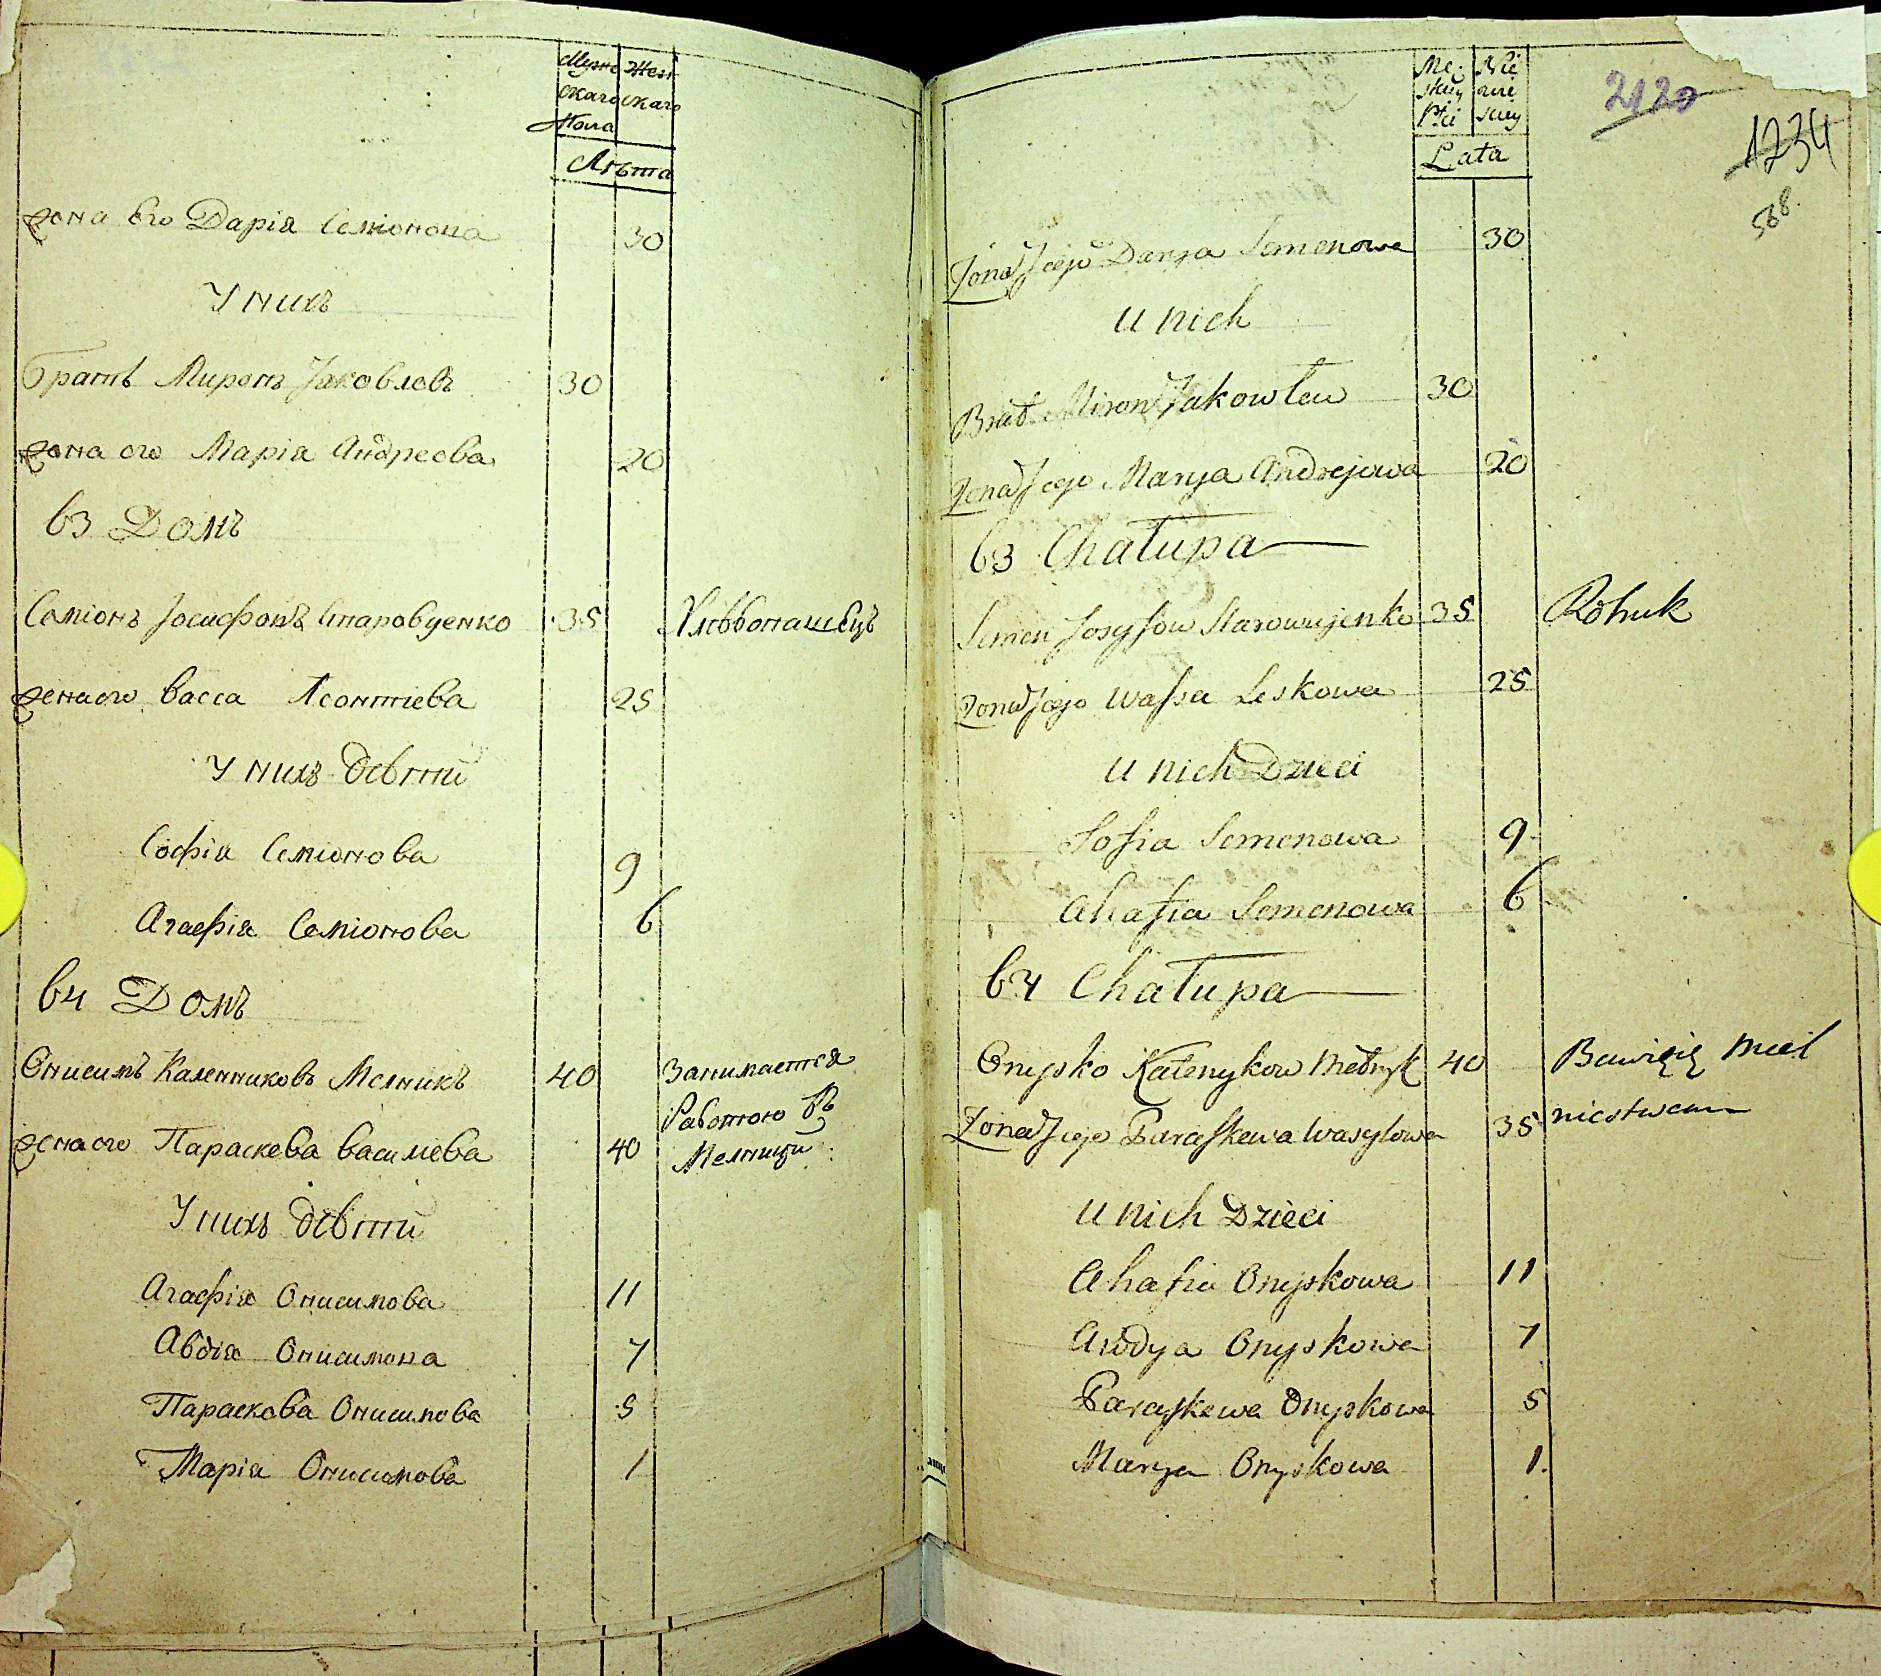 Мужс Жен
скаго скаго
Пола
Лѣта
жена Его Дарія Семіонова 30
У нихъ
Братъ Миронъ Јаковлевъ 30
жена его Марія Андреева 20
63 Домъ
Семіонъ Јосифовъ Старовуенко 35 Хлѣбопашецъ
жена его Васса Леонтіева 25
У нихъ дѣти
Софія Семіонова 9
Агафія Семіонова 6
64 Домъ
Онисимъ Каленниковъ Мелникъ 40 Занимается
Работою въ
жена его Параскева Василіева 40 Мелници
У нихъ дѣти
Агафія Онисимова 11
Авдія Онисимова 7
Параскева Онисимова 5
Марія Онисимова 1
Mę Nie
skiey wie
Płci sciey
Lata
2120
1234
568.
Żona Jego Darya Semenowa 30
U nich
Brat Miron Jakowlew 30
Żona Jego Marya Andrejowa 20
63 Chałupa
Semen Josyfow Starowujenko 35 Rolnik
Żona Jego Wassa Leskowa 25
U nich Dzieci
Sofia Semenowa 9
Ahafia Semenowa 6
64 Chałupa
Onysko Kałenykow Mełnyk 40 Bawi się Miel
Żona Jego Paraskewa Wasylowa 35 nictwem
U nich Dzieci
Ahafia Onyskowa 11
Awdya Onyskowa 7
Paraskewa Onyskowa 5
Marya Onyskowa 1.